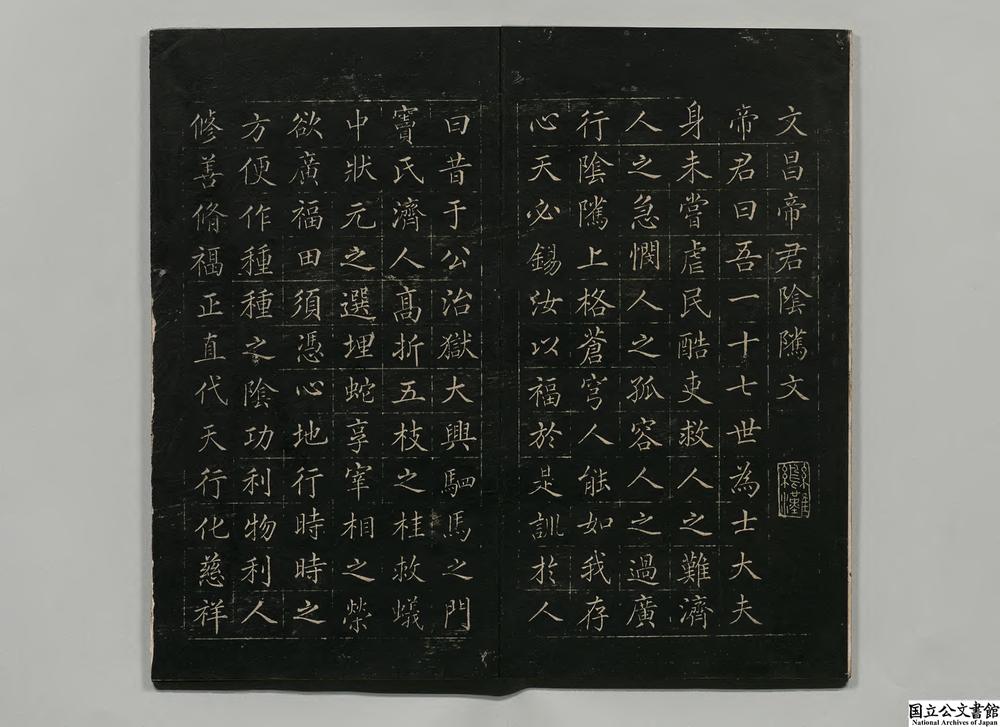 文昌帝君陰隲文
帝君曰吾一十七世為士大夫
身未嘗虐民酷吏救人之難濟
人之急憫人之孤容人之過廣
行陰隲上格蒼穹人能如我存
心天必錫汝以福於是訓於人
曰昔于公治獄大興駟馬之門
竇氏濟人高折五枝之桂救蟻
中狀元之選埋蛇享宰相之榮
欲廣福田須憑心地行時時之
方便作種種之陰功利物利人
修善脩福正直代天行化慈祥
国立公文書館
National Archives of Japan